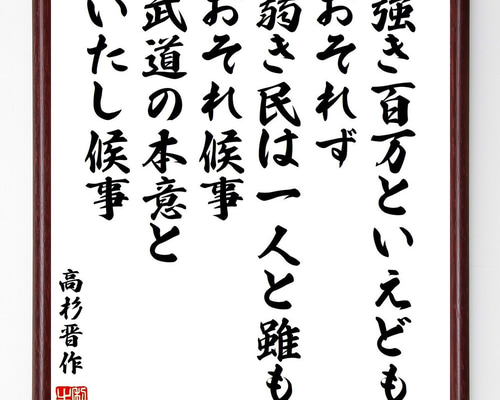 強き百万といえども
おそれず
弱き民は一人と雖も
おそれ候事
武道の本意と
いたし候事
高杉晋作